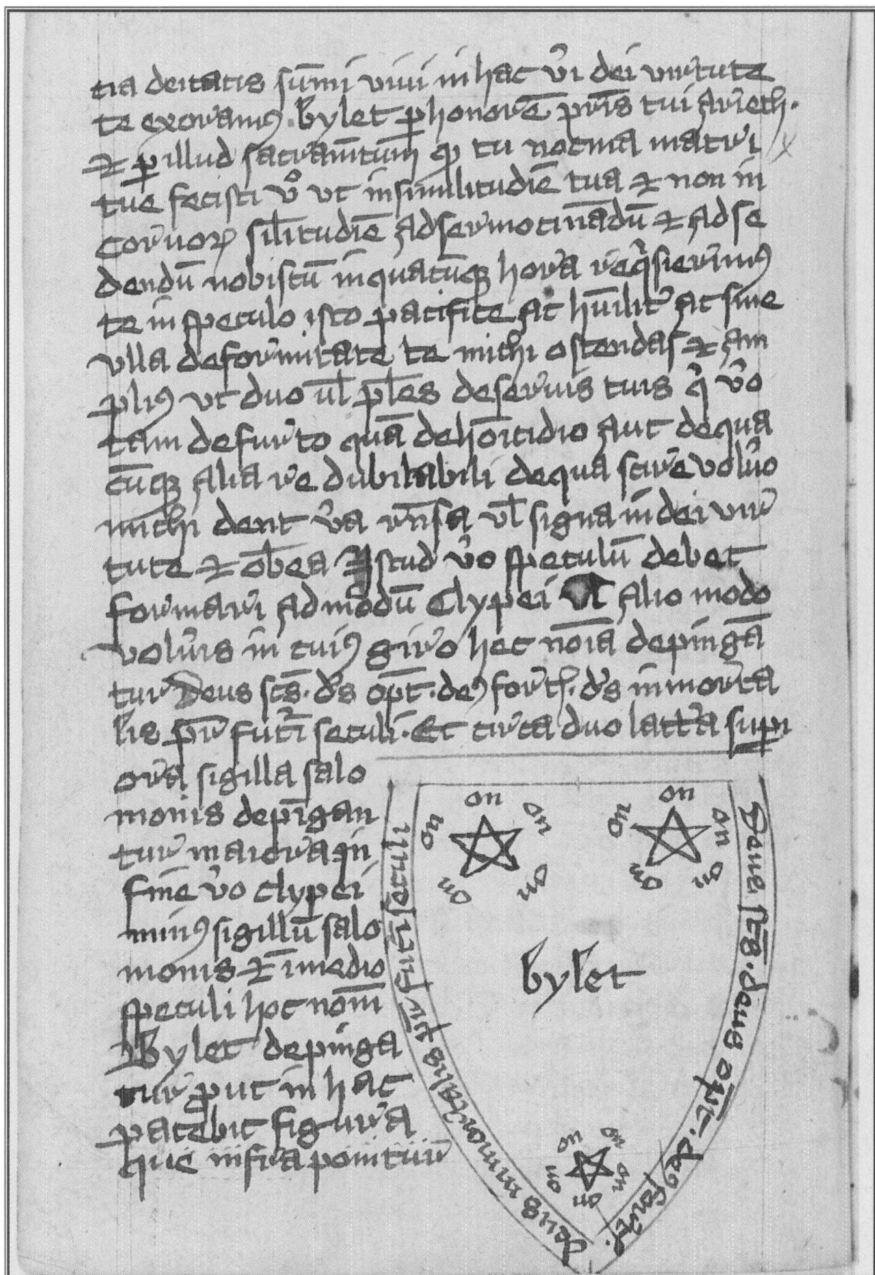 tia deitatis sūmi vivi in hac v̄i dei virtute
te exoramꝰ. bylet ꝑ honorē pr̄is tui arieth.
⁊ ꝑ illud sacram̄tum qꝫ tu noctina matri
tue fecisti vͦ ut in similitudiē tua ⁊ non in
corvoꝝ sil̄itudiē ad sermocināduꝫ ⁊ ad se
dendū nobiscū in quacūqꝫ hora req̄sierimꝰ
te in speculo isto pacifice ac hūilit̄ ac sine
ulla deformitate te michi ostendas ⁊ am
pliꝰ ut duo ul̄ pl̄es de servis tuis q̄ v̄o
tam de furto quā de hōicidio aut de qua
cūqꝫ alia re dubitabili de qua scire voluo
michi dent v̄a rn̄sa vl̄ signa in dei vir
tute ⁊ obea Istud v̄o speculū debet
formari ad modū Clypei vl̄ alio modo
volu̅is in cuiꝰ giro hec noīa depingā
tur Deus sc̄s. ds̄ opt̄. deꝰ forth. ds̄ inmorta
lis pr̄ fut̄i seculi. Et circa duo latt̄a supi
ora sigilla salo
monis depīgan
tur maiora in
fine v̄o clypei
minꝰ sigillū salo
monis ⁊ ī medio
speculi hoc nom̄
Bylet depinga
tur ꝓut in hac
patebit figura
que infra ponitur
on on on on on
on on on on on
bylet
on on on on on
Deus sc̄s. deus opt̄. deꝰ forth.
deus inmortalis pr̄ fut̄i seculi